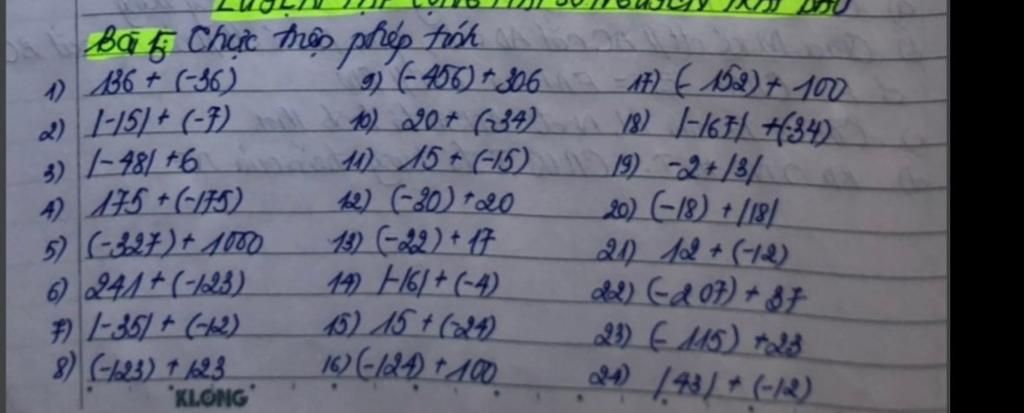 LUYỆN TẬP CỘNG HAI SỐ NGUYÊN TRÁI DẤU
Bài 1: Thực hiện phép tính
1) 136 + (-36) 9) (-456) + 306 17) (-152) + 100
2) |-15| + (-7) 10) 20 + (-34) 18) |-167| + (-34)
3) |-48| + 6 11) 15 + (-15) 19) -2 + |3|
4) 175 + (-175) 12) (-30) + 20 20) (-18) + |18|
5) (-327) + 1000 13) (-22) + 17 21) 12 + (-12)
6) 241 + (-123) 14) |-16| + (-4) 22) (-207) + 37
7) |-35| + (-12) 15) 15 + (-24) 23) (-115) + 23
8) (-123) + 123 16) (-124) + 100 24) |43| + (-12)
KLONG